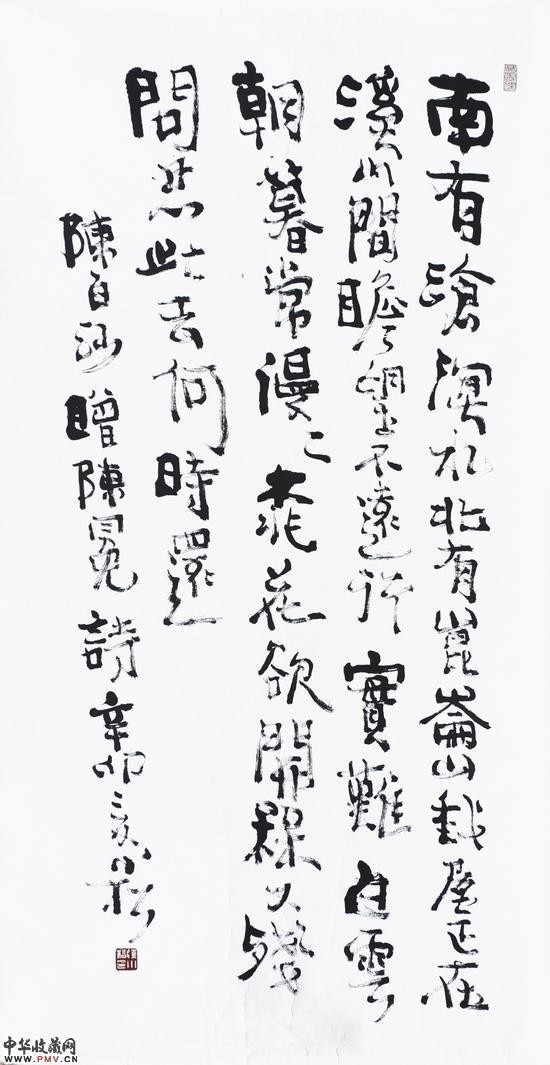 南有滄溟水北有崑崙山我屋正在
山間瞻望不遠行實難白雲
朝暮常漫〻桃花欲開又殘
問此去何時還
陳白沙贈陳冕詩辛卯
中华收藏网
WWW.PMV.CN